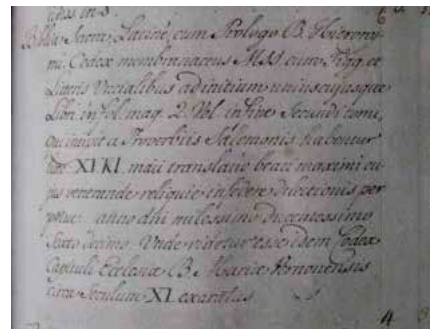 Biblia Sacra, Latinè, cum Prologo B. Hierony-
mi. Codex membranaceus MSS cum Figg. et
Litteris Uncialibus ad initium uniuscujusque
Libri in fol. mag. 2. Vol. in fine Secundi tomi,
qui incipit a Proverbiis Salomonis habentur
XI KL. maii translatio beati maximi cu-
jus venerande reliquie in federe dilectionis per
anno dni milessimo ducentessimo
Sexto decimo. Unde videtur esse idem Codex
Capituli Ecclesiæ B. Mariæ
circa Seculum XI exaratus
4